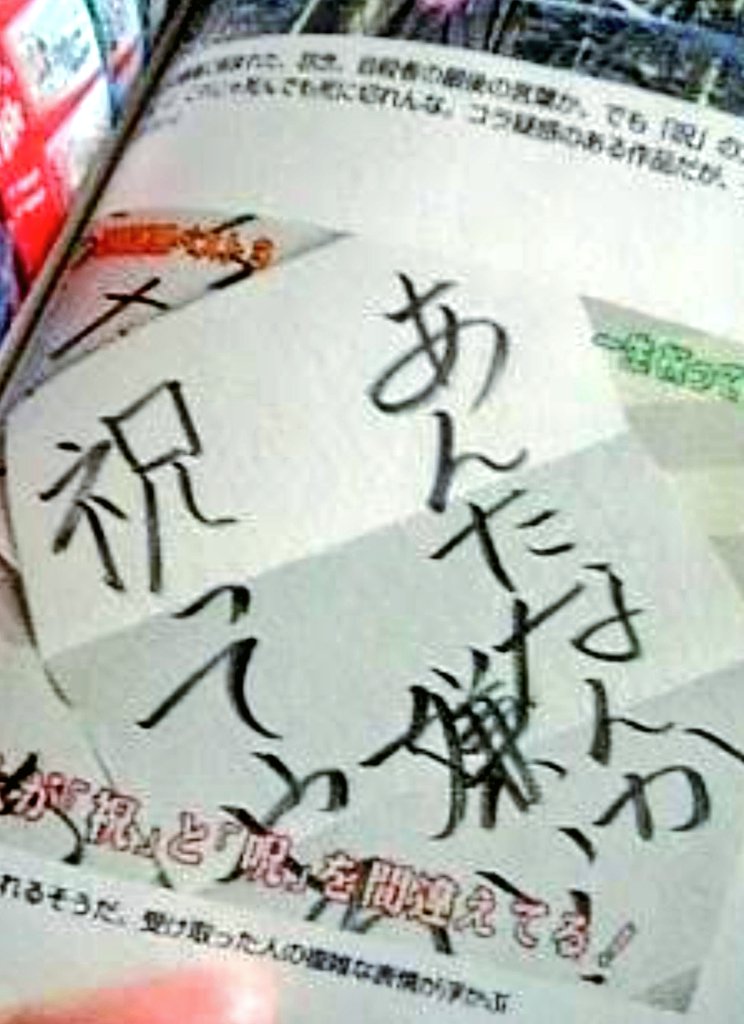 自殺者の最後の言葉か。でも「呪」の
死んでも死に切れんな。コラ疑惑のある作品だが、
あんたなんか
嫌い
祝ってや
が「祝」と「呪」を間違えてる!
れるそうだ。受け取った人の複雑な表情が浮かぶ